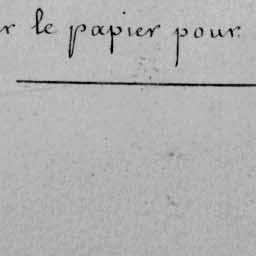 r le papier pour